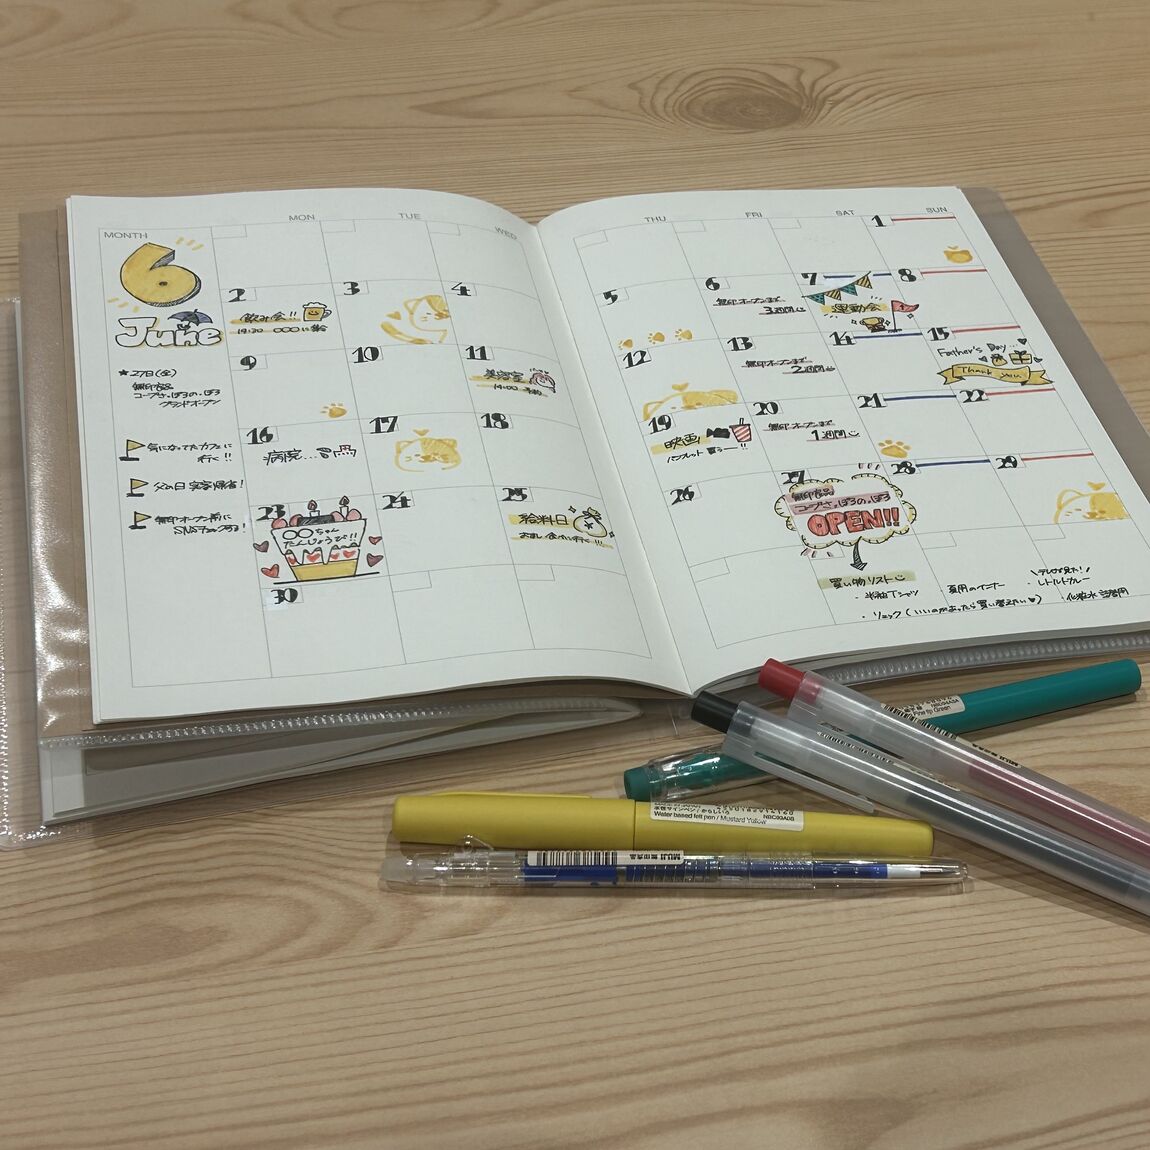 MONTH
MON
TUE
WED
THU
FRI
SAT
SUN
6
June
★27日(金)
無印良品
コープさっぽろの・ぽろ
グランドオープン
気になってたカフェに
行く!!
父の日 実家帰省!
無印オープン前に
SNSチェックする!
1
2
飲み会!!
19:30 〇〇〇に集合
3
4
5
6
無印オープンまで
3週間
7
運動会
8
9
10
11
美容室
14:00 予約
12
13
無印オープンまで
2週間
14
15
Father's Day...
Thank you
16
病院...
17
18
19
映画
パンフレット買うー!!
20
無印オープンまで
1週間
21
22
23
〇〇ちゃん
たんじょうび!!
24
25
給料日
おすし食べに行く!!!
26
27
無印良品
コープさっぽろの・ぽろ
OPEN!!
28
29
30
買い物リスト
・半袖Tシャツ
・リュック(いいのがあったら買い替えたい♥)
・夏用のインナー
\テレビで見た!/
・レトルトカレー
・化粧水 詰替用
Fine tip Green
水性サインペン/からしいろ
Water based felt pen / Mustard Yellow
MUJI 無印良品